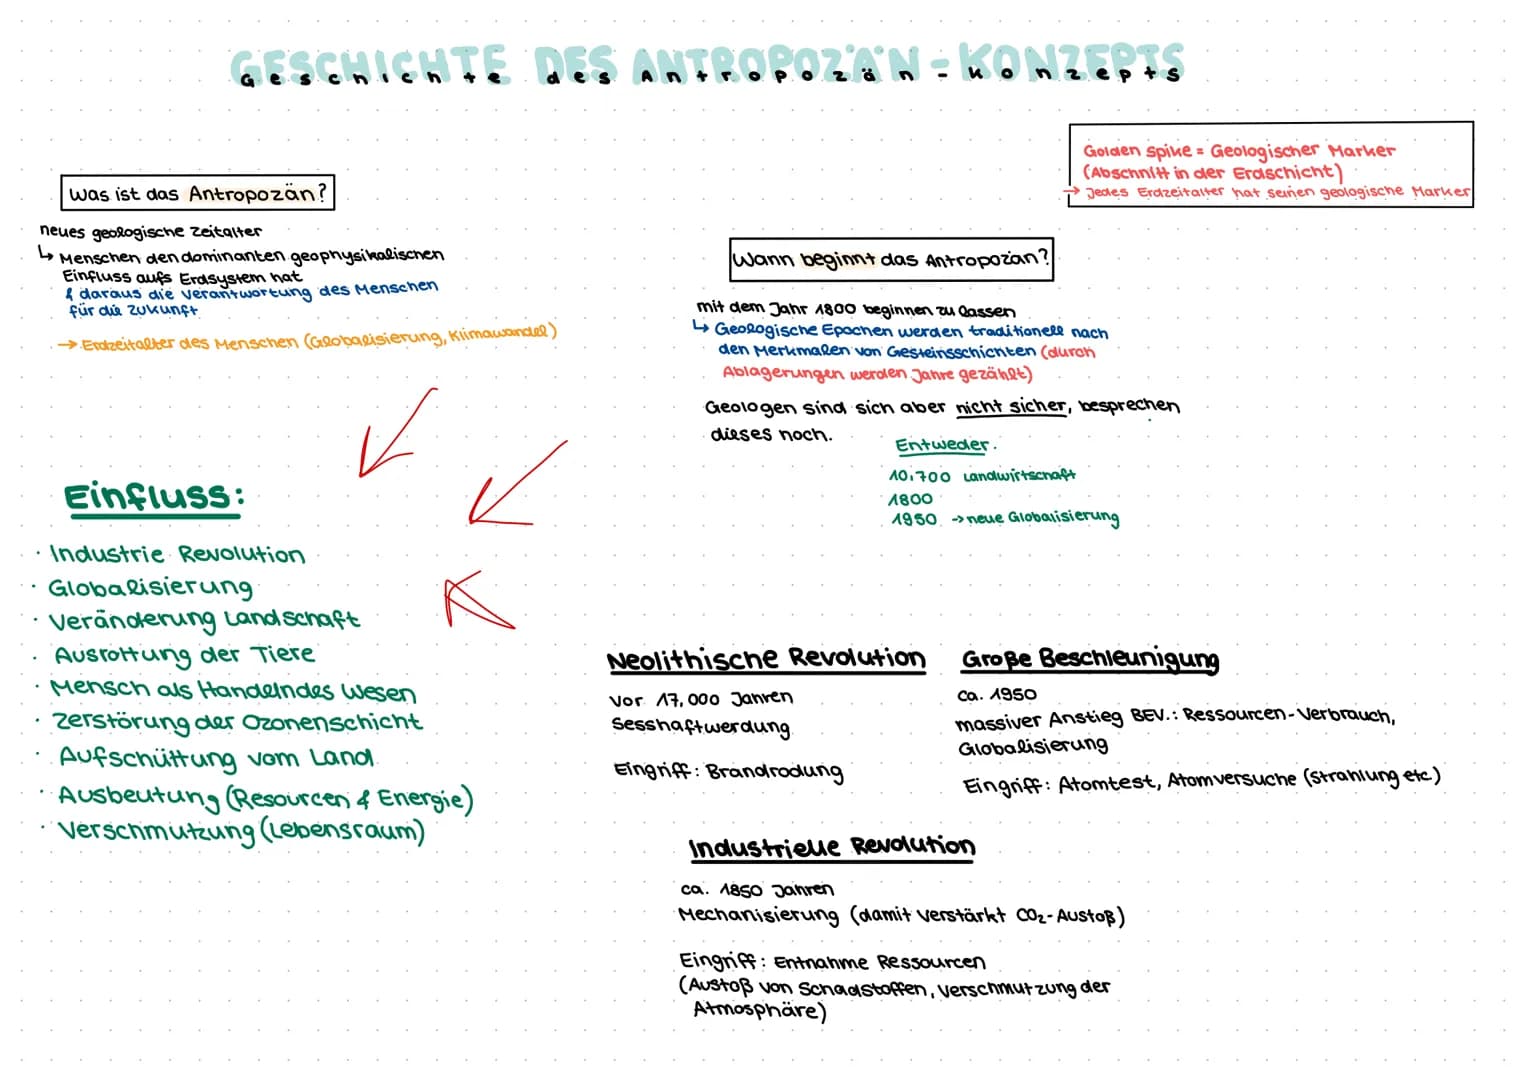 GESCHICHTE DES ANTROPOZÄN-KONZEPTS
Geschichte des Antropozän-Konzepts
Golden spike = Geologischer Marker
(Abschnitt in der Erdschicht)
→ Jedes Erdzeitalter hat seinen geologische Marker
Was ist das Antropozän?
neues geologische Zeitalter
↳ Menschen den dominanten geophysikalischen
Einfluss aufs Erdsystem hat
& daraus die Verantwortung des Menschen
für die Zukunft
→ Erdzeitalter des Menschen (Globalisierung, Klimawandel)
Wann beginnt das Antropozän?
mit dem Jahr 1800 beginnen zu lassen
↳ Geologische Epochen werden traditionell nach
den Merkmalen von Gesteinsschichten (durch
Ablagerungen werden Jahre gezählt)
Geologen sind sich aber nicht sicher, besprechen
dieses noch.
Entweder.
10,700 Landwirtschaft
1800
1950 → neue Globalisierung
Einfluss:
· Industrie Revolution
· Globalisierung
· Veränderung Landschaft
· Ausrottung der Tiere
· Mensch als Handelndes Wesen
· Zerstörung der Ozonenschicht
· Aufschüttung vom Land
· Ausbeutung (Resourcen & Energie)
· Verschmutzung (Lebensraum)
Neolithische Revolution
Vor 17,000 Jahren
Sesshaftwerdung
Eingriff: Brandrodung
Große Beschleunigung
ca. 1950
massiver Anstieg BEV.: Ressourcen-Verbrauch,
Globalisierung
Eingriff: Atomtest, Atomversuche (Strahlung etc.)
Industrielle Revolution
ca. 1850 Jahren
Mechanisierung (damit verstärkt CO₂-Austoß)
Eingriff: Entnahme Ressourcen
(Austoß von Schadstoffen, Verschmutzung der
Atmosphäre)